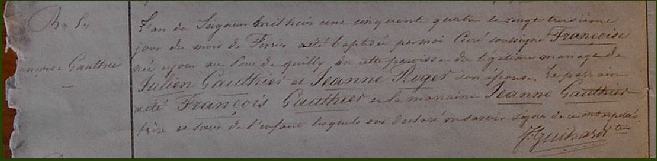 Bn 54
Gauthier
L'an du Seigneur mil huit cent cinquante quatre le vingt troisième
jour du mois de a été baptisée par moi Curé soussigné Françoise
née jour au lieu de de cette paroisse du légitime mariage de
Julien Gauthier et Jeanne Roger son épouse le parrain
a été François Gauthier et la marraine Jeanne Gauthier
frère et sœur de l'enfant lesquels ont déclaré ne savoir signer de ce interpellés